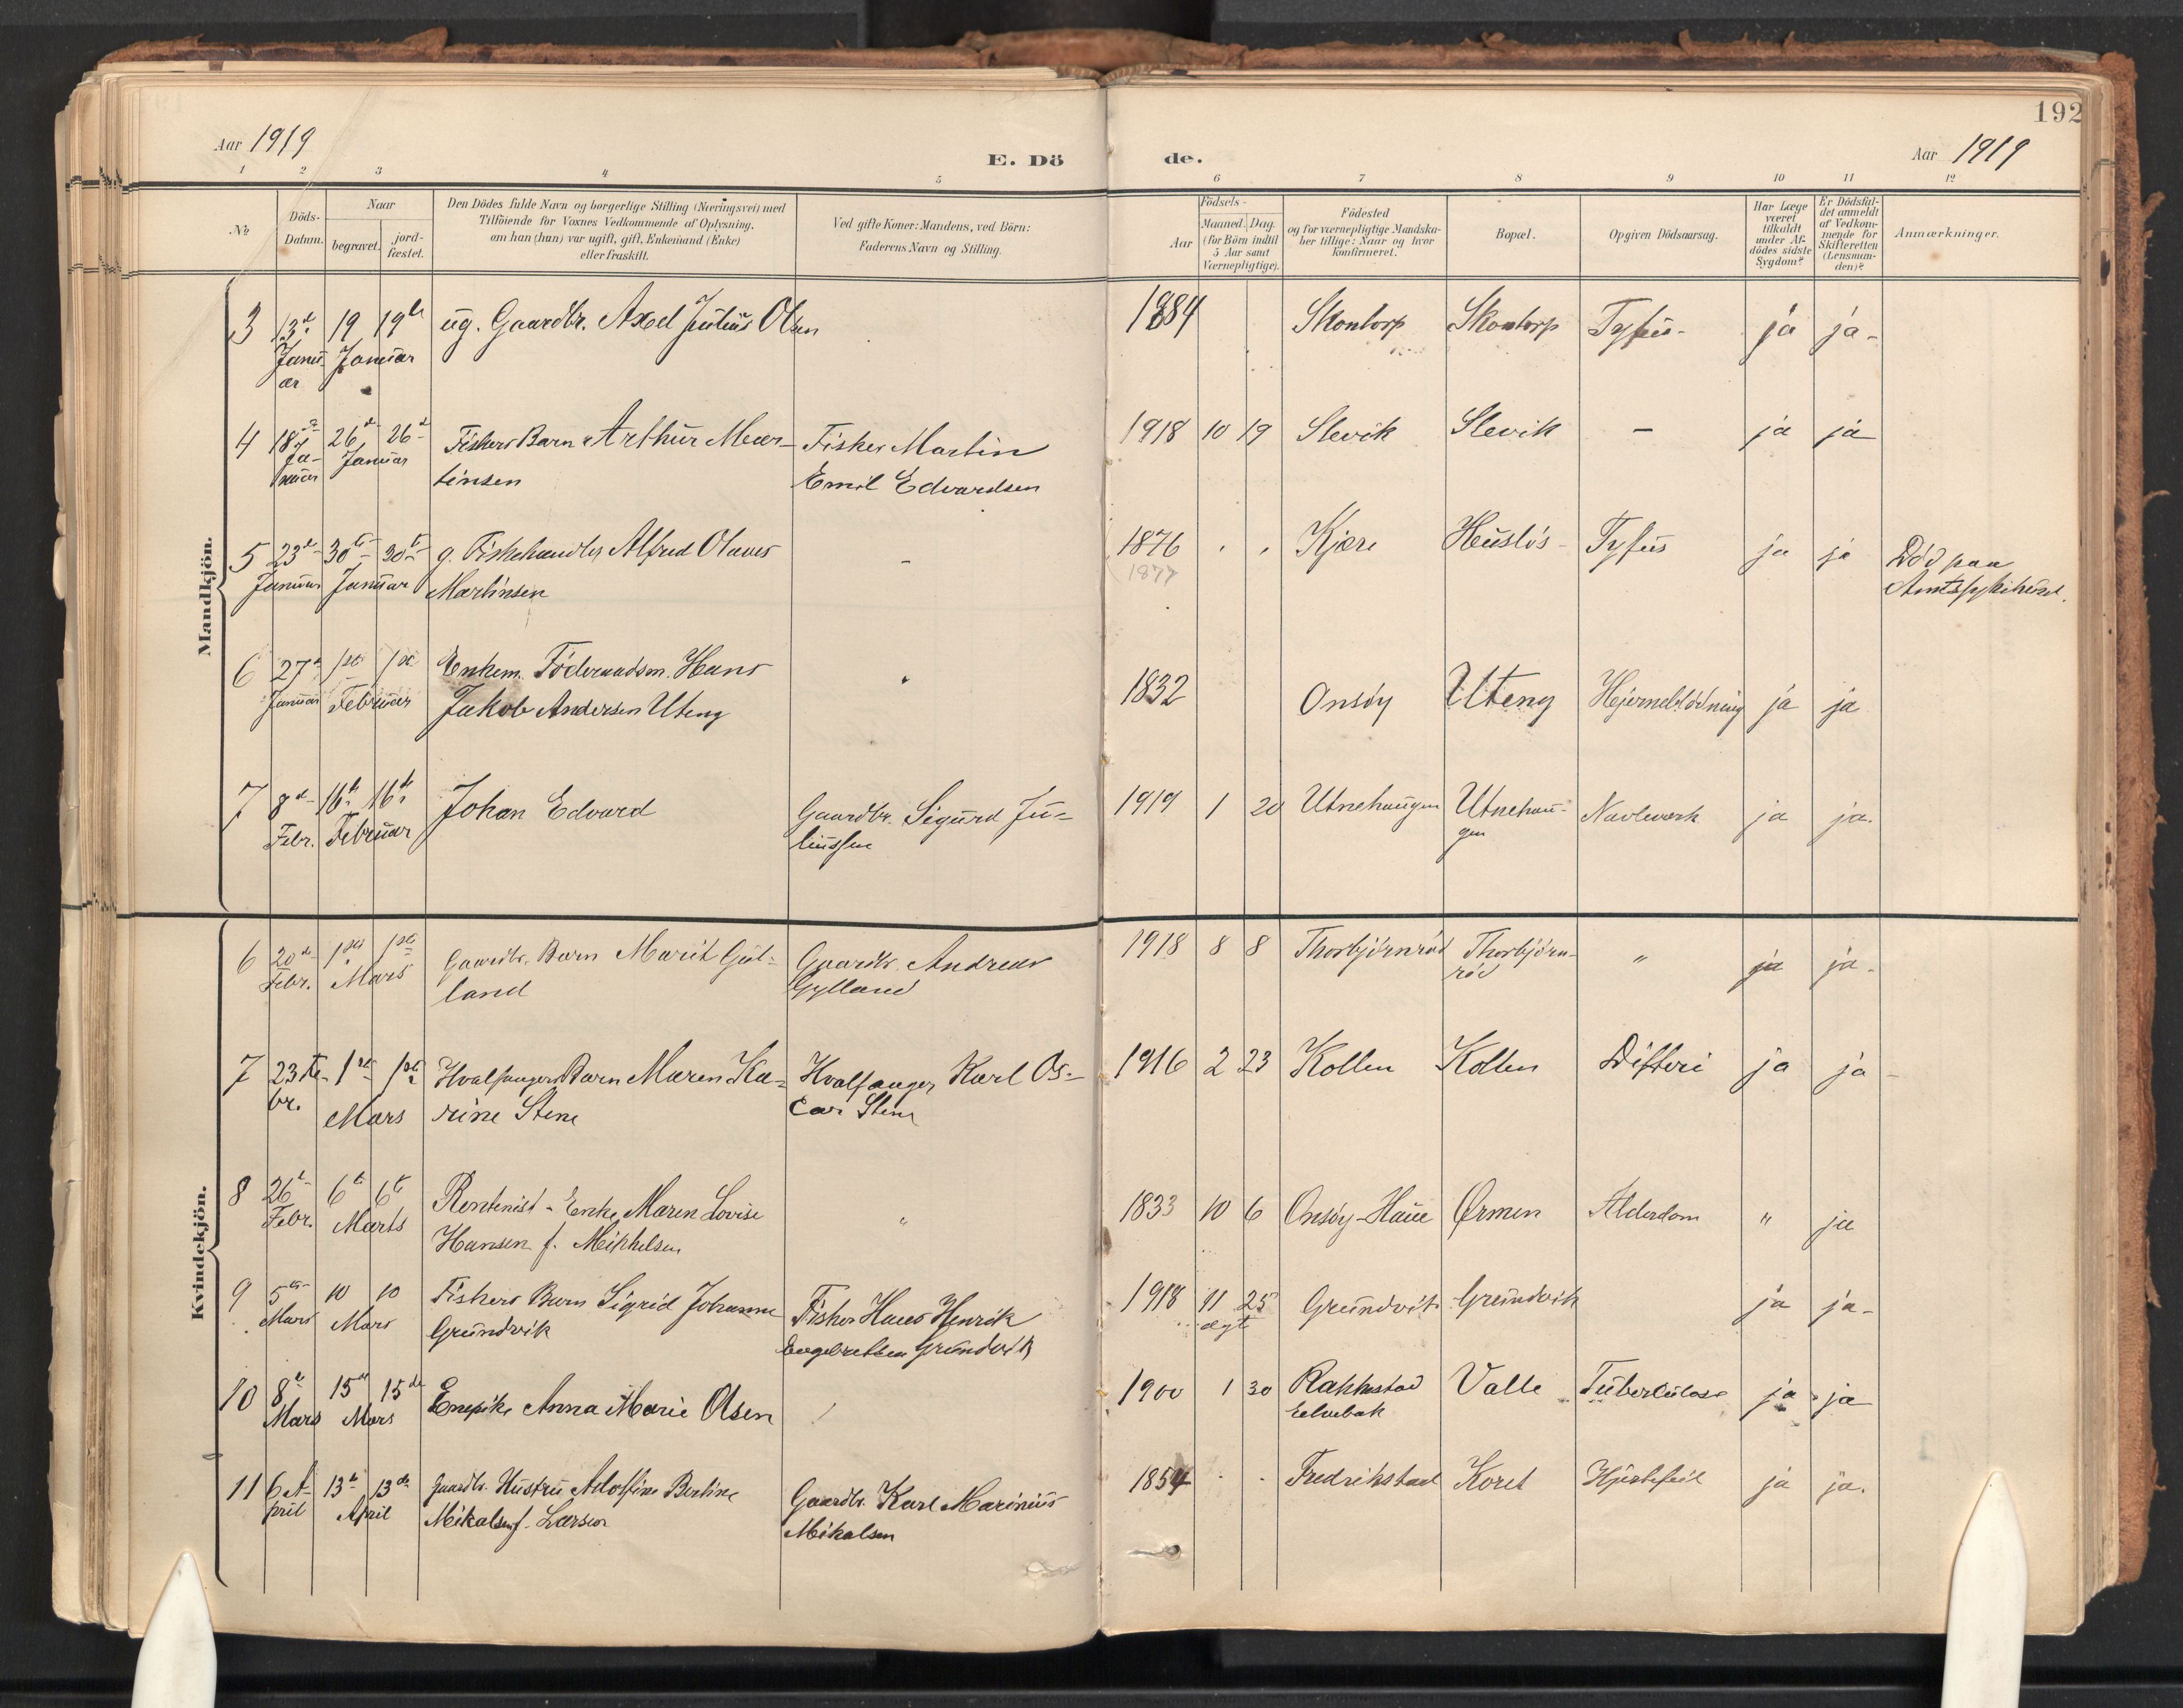 192
Aar 1919
E. Dö
de.
Aar 1919
1 2 3 4 5 6 7 8 9 10 11 12
№
Döds-
Datum.
Naar
begravet.
jord-
fæstet.
Den Dödes fulde Navn og borgerlige Stilling (Næringsvei) med
Tilföiende for Voxnes Vedkommende af Oplysning,
om han (hun) var ugift, gift, Enkemand (Enke)
eller fraskilt.
Ved gifte Koner: Mandens, ved Börn:
Faderens Navn og Stilling.
Födsels-
Aar
Maaned. Dag.
(for Börn indtil
5 Aar samt
Værnepligtige).
Födested
og for værnepligtige Mandska-
ber tillige: Naar og hvor
konfirmeret.
Bopæl.
Opgiven Dödsaarsag.
Har Læge
været
tilkaldt
under Af-
dödes sidste
Sygdom?
Er Dödsfal-
det anmeldt
af Vedkom-
mende for
Skifteretten
(Lensman-
den)?
Anmærkninger.
Mandkjön.
3 13de 19 19de ug. Gaardbr. Axel Julius Olsen 1884 Skontorp Skontorp Tyfus - ja ja -
Janu- Januar
ar
4 18de 26de 26de Fiskers Barn Arthur Mar- Fisker Martin 1918 10 19 Slevik Slevik - ja ja
Ja- Januar tinsen Emil Edvardsen
nuar
5 23de 30te 30te g. Fiskehandler Alfred Olaves - 1876 Kjære Huslös - Tyfus ja ja Död paa
Januar Januar Martinsen 1877 Amtssykehuset.
6 27de 1ste 1ste Enkem. Föderaadsm. Hans 1832 Onsöy Uteng Hjerneblödning ja ja
Januar Februar Jakob Andersen Uteng
7 8de 16de 16de Johan Edvard Gaardbr. Sigurd Ju- 1919 1 20 Utnehaugen Utnehau- Navleværk ja ja.
Febr. Februar liussen gen
Kvindekjön.
6 20de 1ste 1ste Gaardbr. Barn Marit Gul- Gaardbr. Andreas 1918 8 8 Thorbjörnröd Thorbjörn- " ja ja -
Febr. Mars land Gylland röd
7 23 Fe- 1ste 1ste Hvalfangers Barn Maren Ka- Hvalfanger Karl Os- 1916 2 23 Kollen Kollen Difteri ja ja -
br. Mars rine Stene car Stene
8 26de 6te 6te Rentenist - Enke Maren Lovise " 1833 10 6 Onsöy - Haue Ørmen Alderdom " ja
Febr. Marts Hansen f. Mikkelsen
9 5te 10 10 Fiskers Barn Sigrid Johanne Fisker Hans Henrik 1918 11 25 Grundvik Grundvik ja ja -
Mars Mars Grundvik Engebretsen Grundvik
10 8de 15de 15de Enepike Anna Marie Olsen 1900 1 30 Rakkestad Valle Tuberkulose ja ja
Mars Mars
11 6 A- 13de 13de Gaardbr. Hustru Adolfine Bertine Gaardbr. Karl Marinius 1854 Fredrikstad Koret Hjertefeil ja ja.
pril April Mikalsen f. Larsen Mikalsen